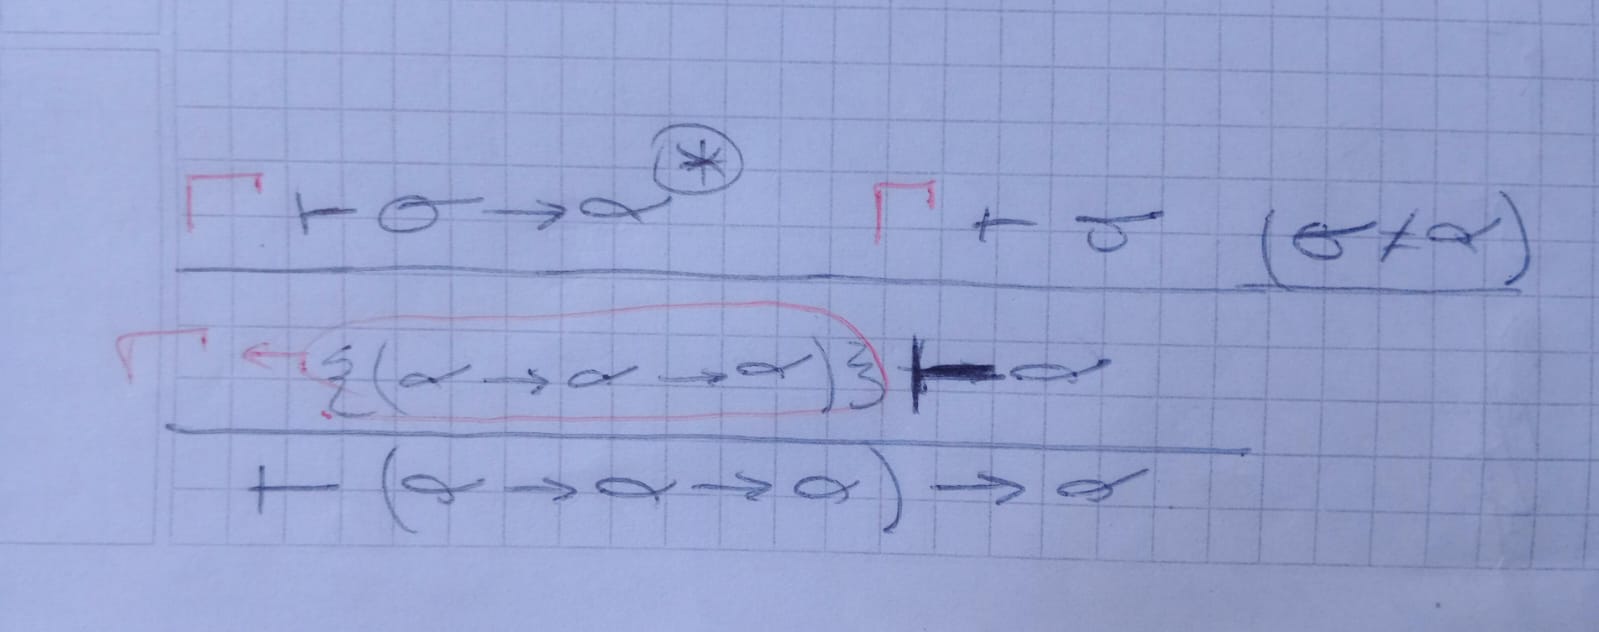 Γ ⊢ σ → α * Γ ⊢ σ (σ ≠ α)
Γ ← {(α → α → α)} ⊢ α
⊢ (α → α → α) → α